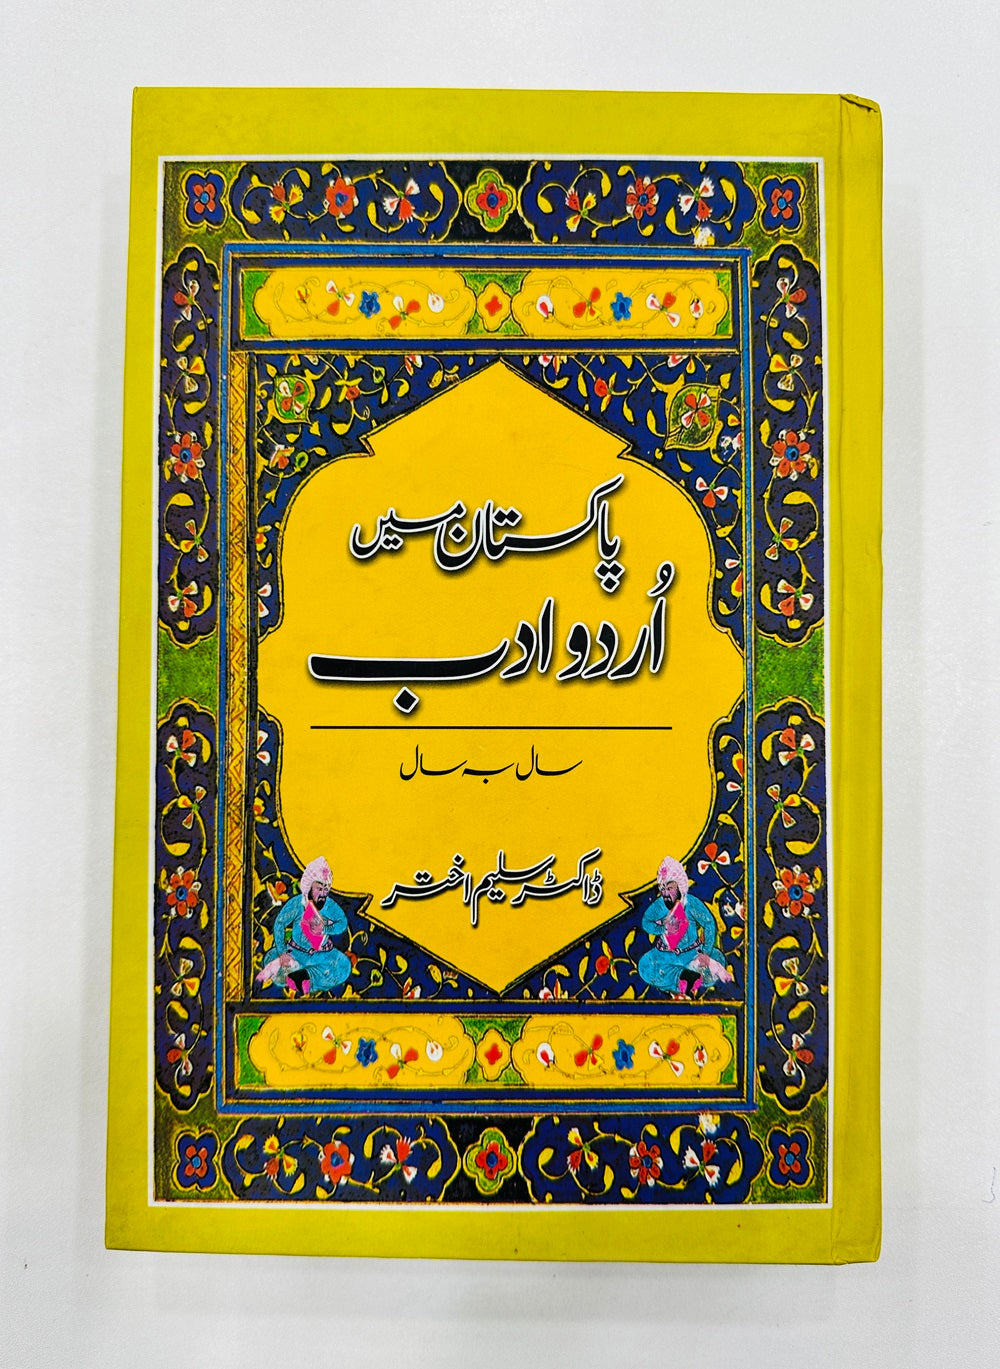 پاکستان میں
اُردو ادب
سال بہ سال
ڈاکٹر سلیم اختر